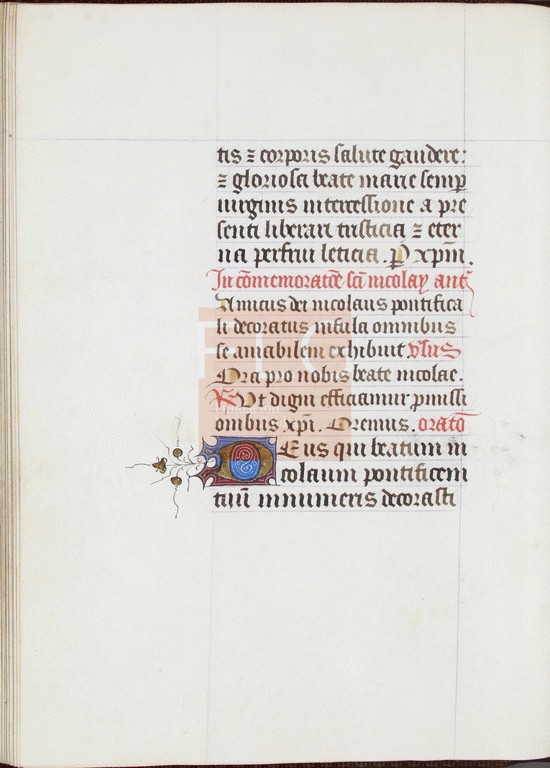 tis ⁊ corporis salute gaudere:
⁊ gloriosa beate marie semp̱
uirginis intercessione a pre
senti liberari tristicia ⁊ eter
na perfrui leticia. p̱ xpm̄.
In cōmemoratōe sc̄i nicolay antᷓ
Amicus dei nicolaus pontifica
li decoratus infula omnibus
se amabilem exhibuit v̄sus
Ora pro nobis beate nicolae.
R̷ Ut digni efficiamur p̱missi
onibus xp̄i. Oremus. oratō
Deus qui beatum ni
colaum pontificem
tuū innumeris decorasti